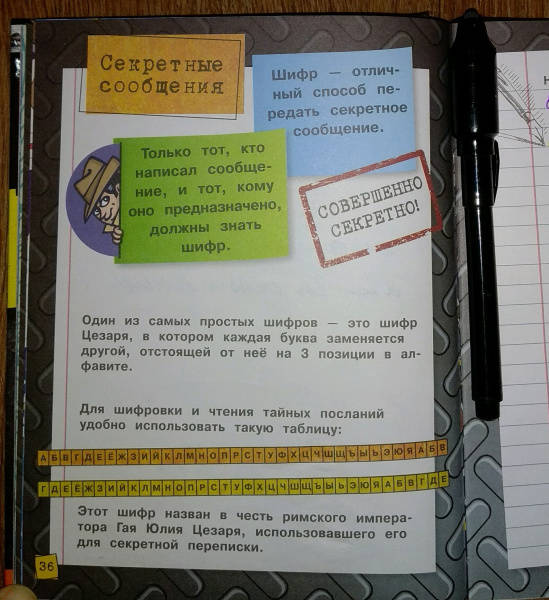 Секретные
сообщения
Шифр — отлич-
ный способ пе-
редать секретное
сообщение.
Только тот, кто
написал сообще-
ние, и тот, кому
оно предназначено,
должны знать
шифр.
СОВЕРШЕННО
СЕКРЕТНО!
Один из самых простых шифров — это шифр
Цезаря, в котором каждая буква заменяется
другой, отстоящей от неё на 3 позиции в ал-
фавите.
Для шифровки и чтения тайных посланий
удобно использовать такую таблицу:
АБВГДЕЁЖЗИЙКЛМНОПРСТУФХЦЧШЩЪЫЬЭЮЯАБВ
ГДЕЁЖЗИЙКЛМНОПРСТУФХЦЧШЩЪЫЬЭЮЯАБВГДЕ
Этот шифр назван в честь римского импера-
тора Гая Юлия Цезаря, использовавшего его
для секретной переписки.
36